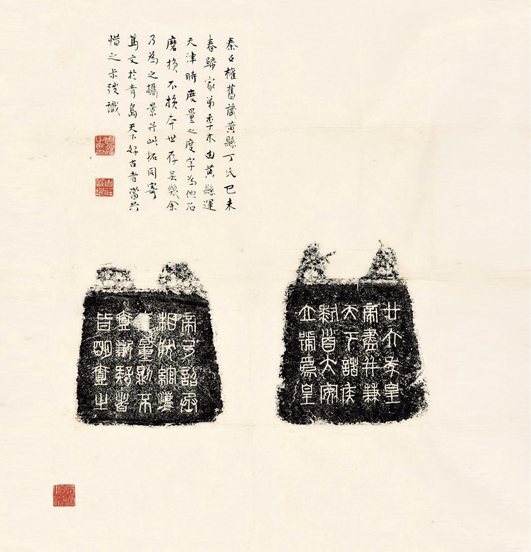 秦石權舊藏黃縣丁氏己未
春歸家弟季木由黃縣運
天津時度量之度字為他石
磨損不損今世存無幾余
乃為之攝景并此拓同寄
文於青島天下好古者當共
惜之弢識
廿六年皇
帝盡并兼
天下諸侯
黔首大安
立號為皇
帝乃詔丞
相狀綰灋
量則不
壹歉疑者
皆明壹之